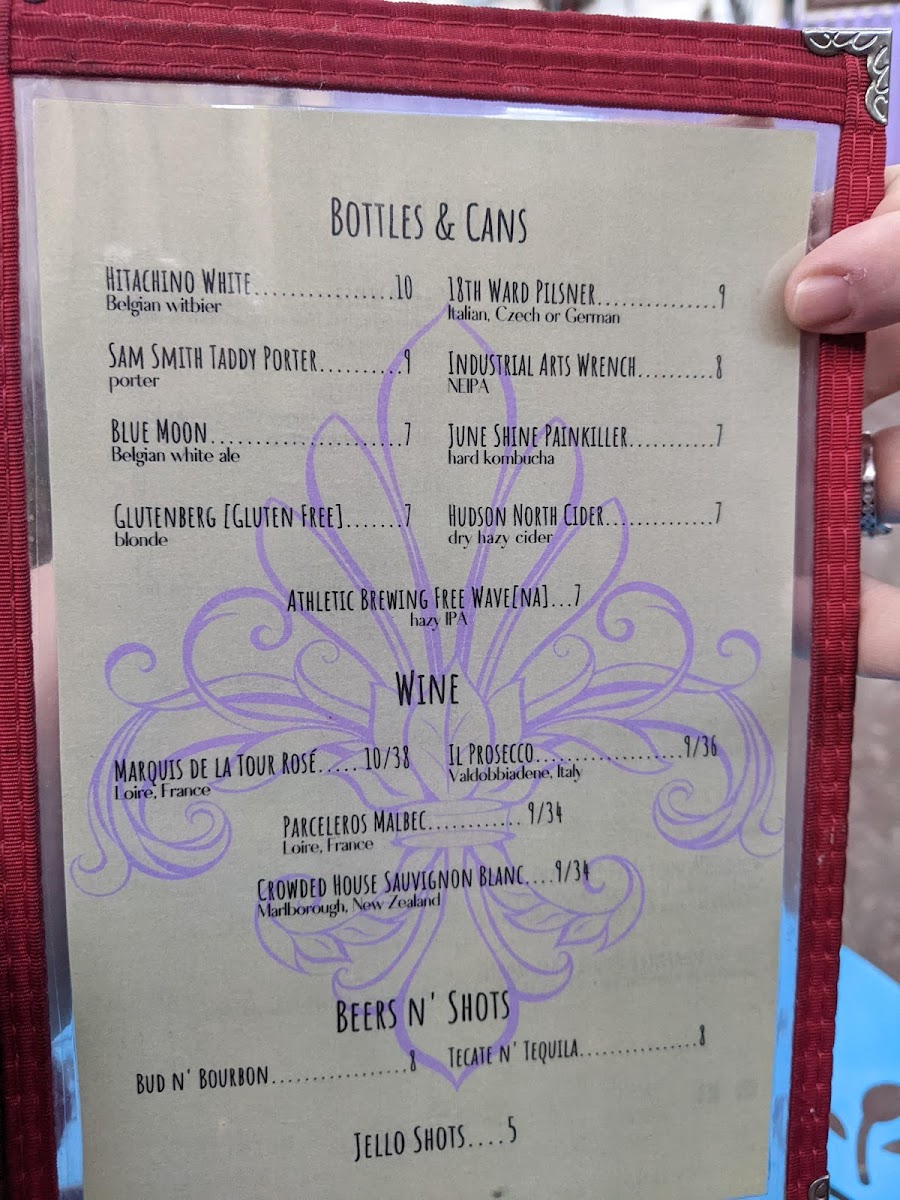 Bottles & Cans
Hitachino White.................10
Belgian witbier
18th Ward Pilsner...............9
Italian, Czech or German
Sam Smith Taddy Porter..........9
porter
Industrial Arts Wrench..........8
NEIPA
Blue Moon.......................7
Belgian white ale
June Shine Painkiller...........7
hard kombucha
Glutenberg [Gluten Free].......7
blonde
Hudson North Cider..............7
dry hazy cider
Athletic Brewing Free Wave[NA]...7
hazy IPA
Wine
Marquis de la Tour Rosé..... 10/38
Loire, France
Il Prosecco...................9/36
Valdobbiadene, Italy
Parceleros Malbec............ 9/34
Loire, France
Crowded House Sauvignon Blanc....9/34
Marlborough, New Zealand
Beers n' Shots
Bud n' Bourbon..................8
Tecate n' Tequila................8
Jello Shots....5